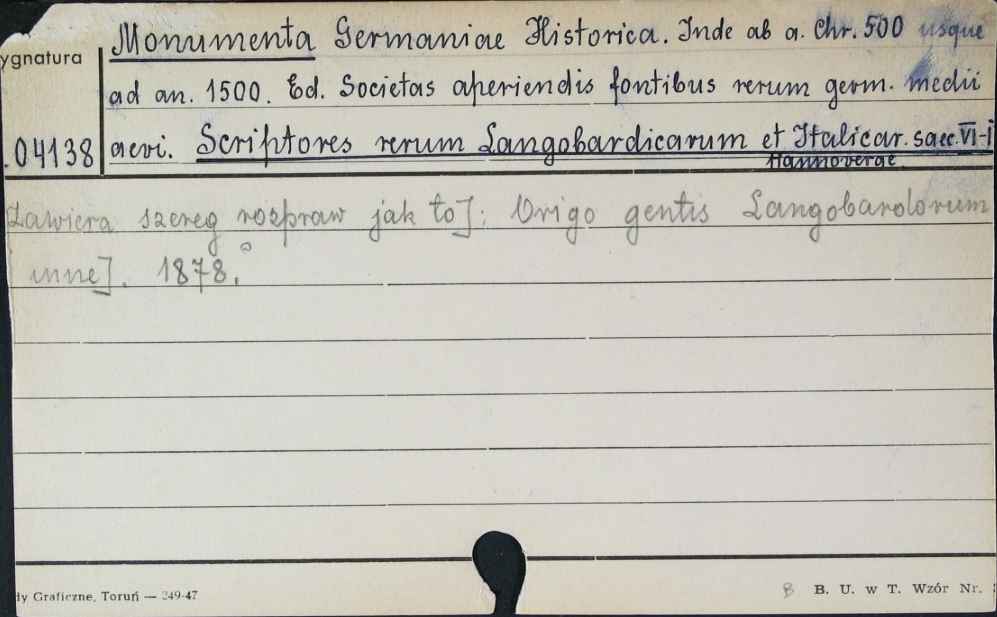 Monumenta Germaniae Historica. Inde ab a. Chr. 500 usque
ygnatura
ad an. 1500. Ed. Societas aperiendis fontibus rerum germ. medii
.04138 aevi. Scriptores rerum Langobardicarum et Italicar. saec. VI-I
Hannoverae
Zawiera szereg rozpraw jak to]: Origo gentis Langobardorum
inne]. 1878.
8°
dy Graficzne, Toruń — 249-47
B. U. w T. Wzór Nr.